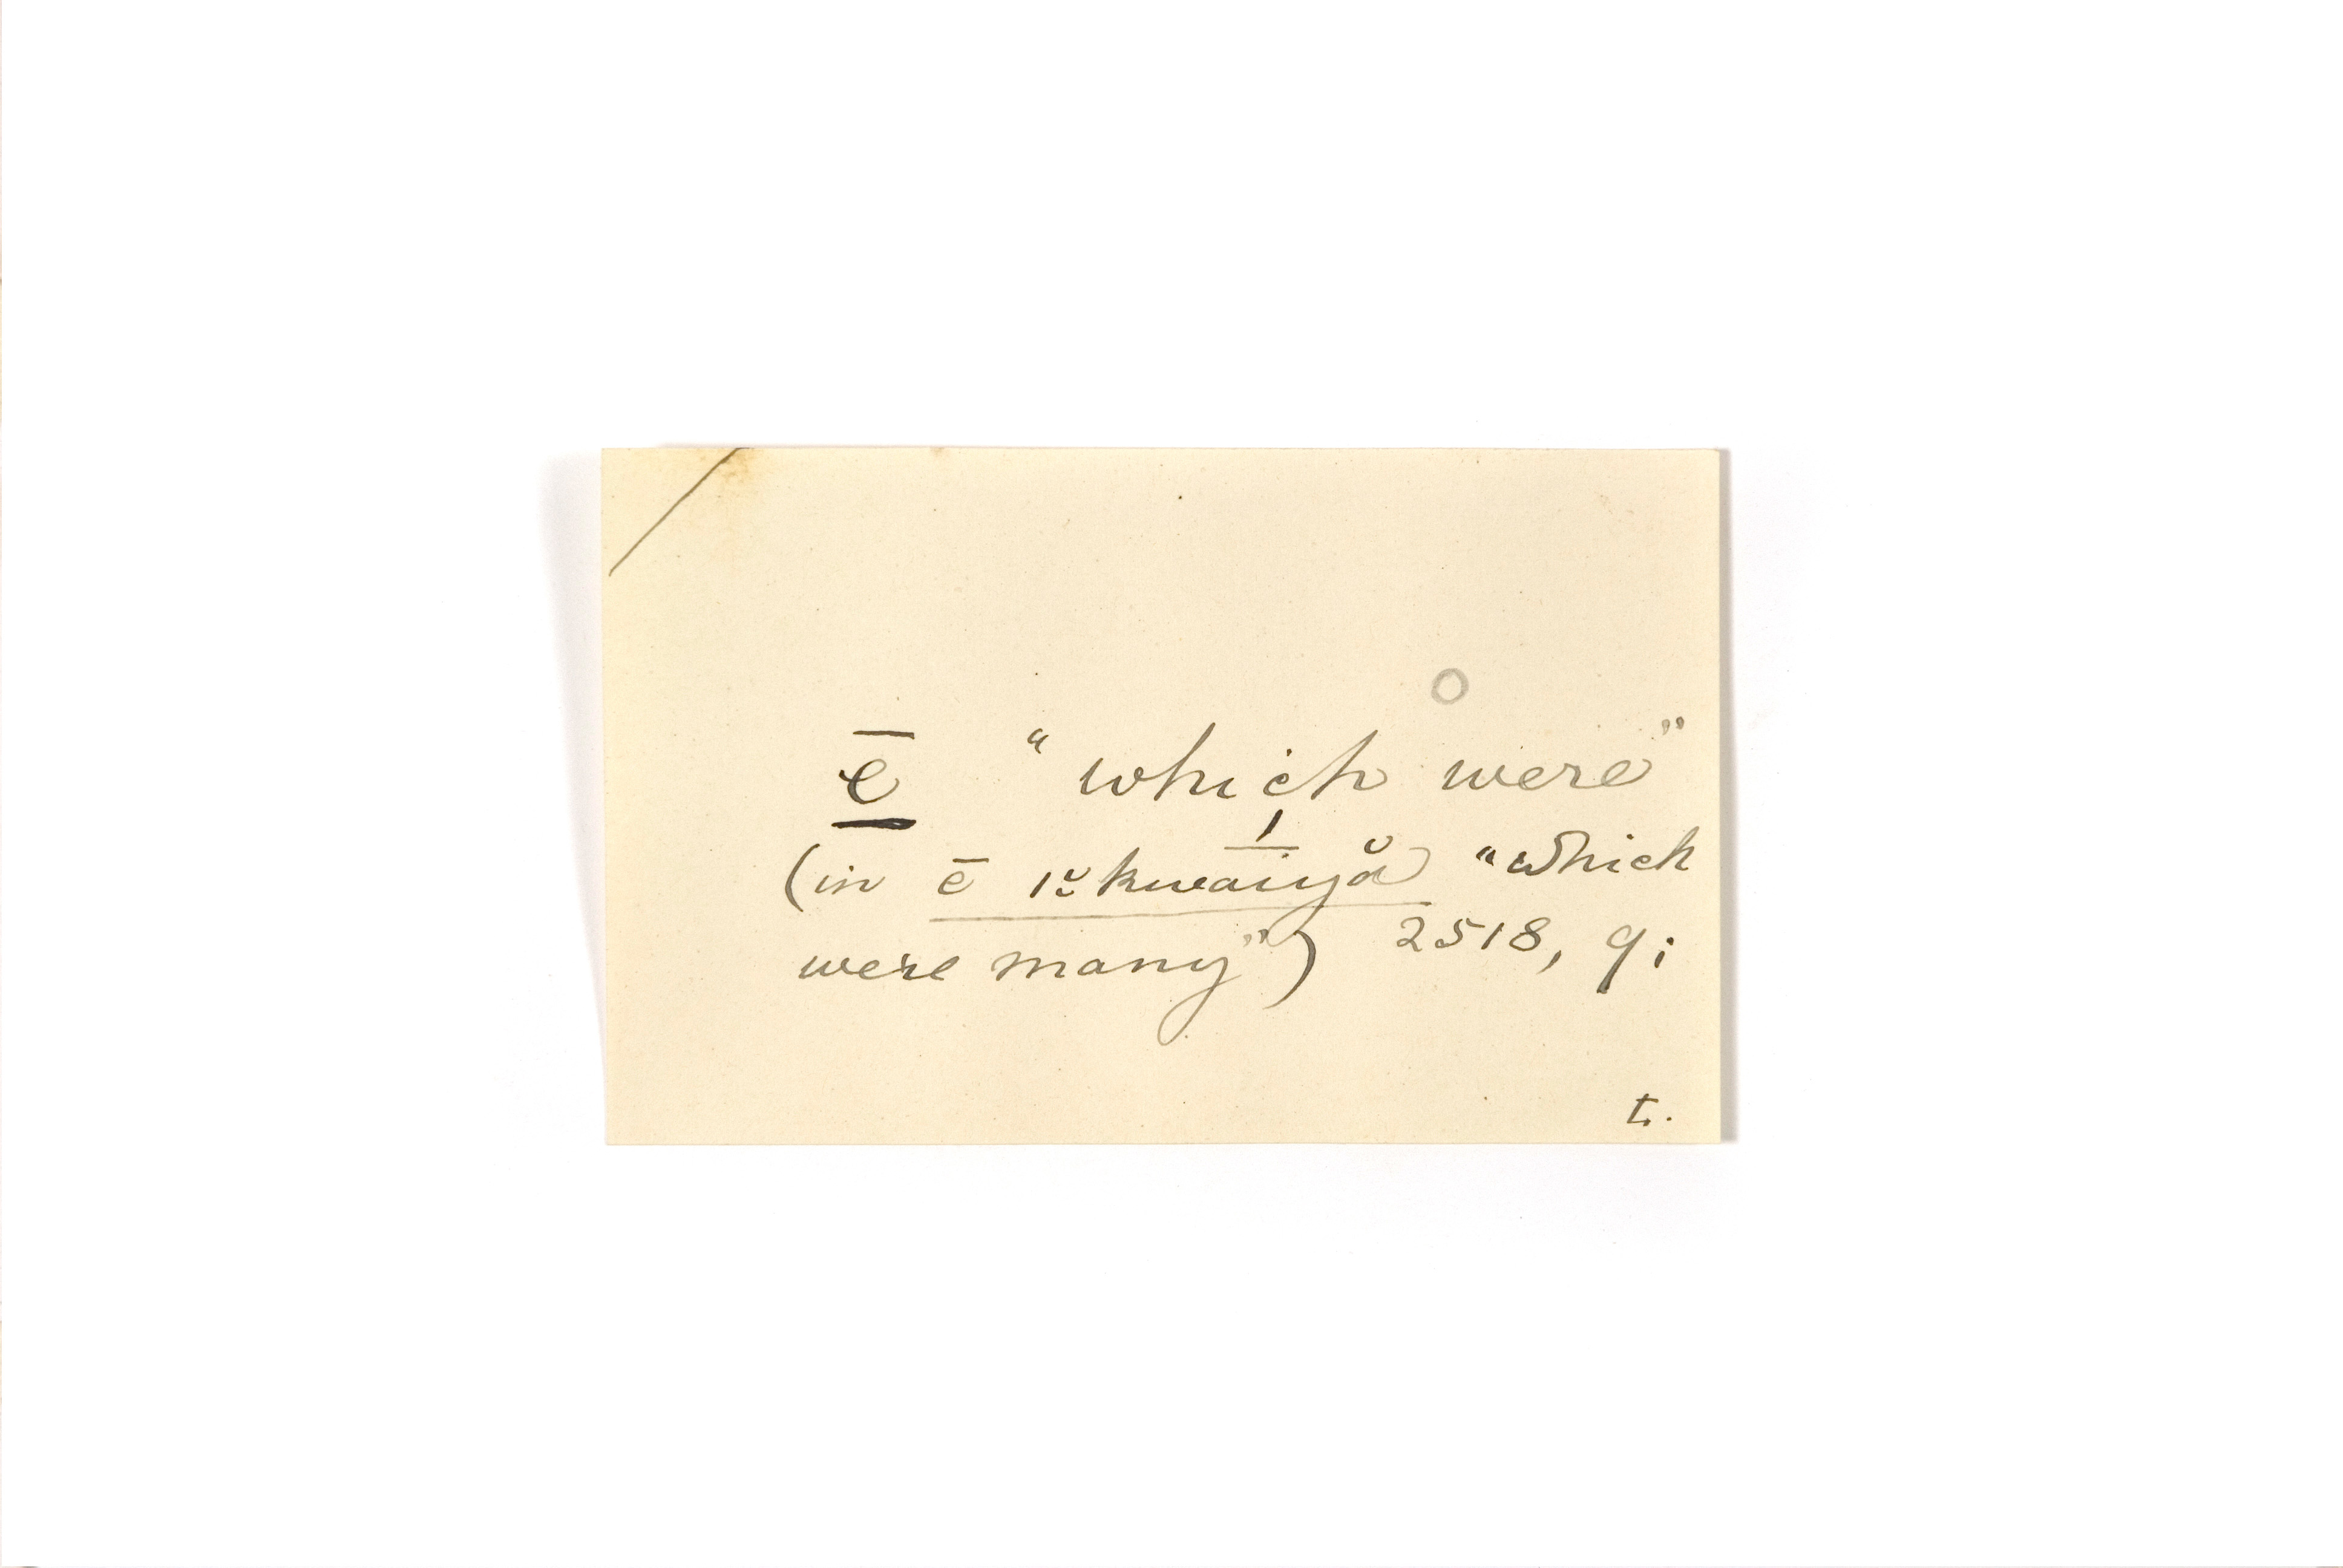 ē “which were”
(in ē ĭ kwaiyă “which
were many”) 2518, 9;
t.